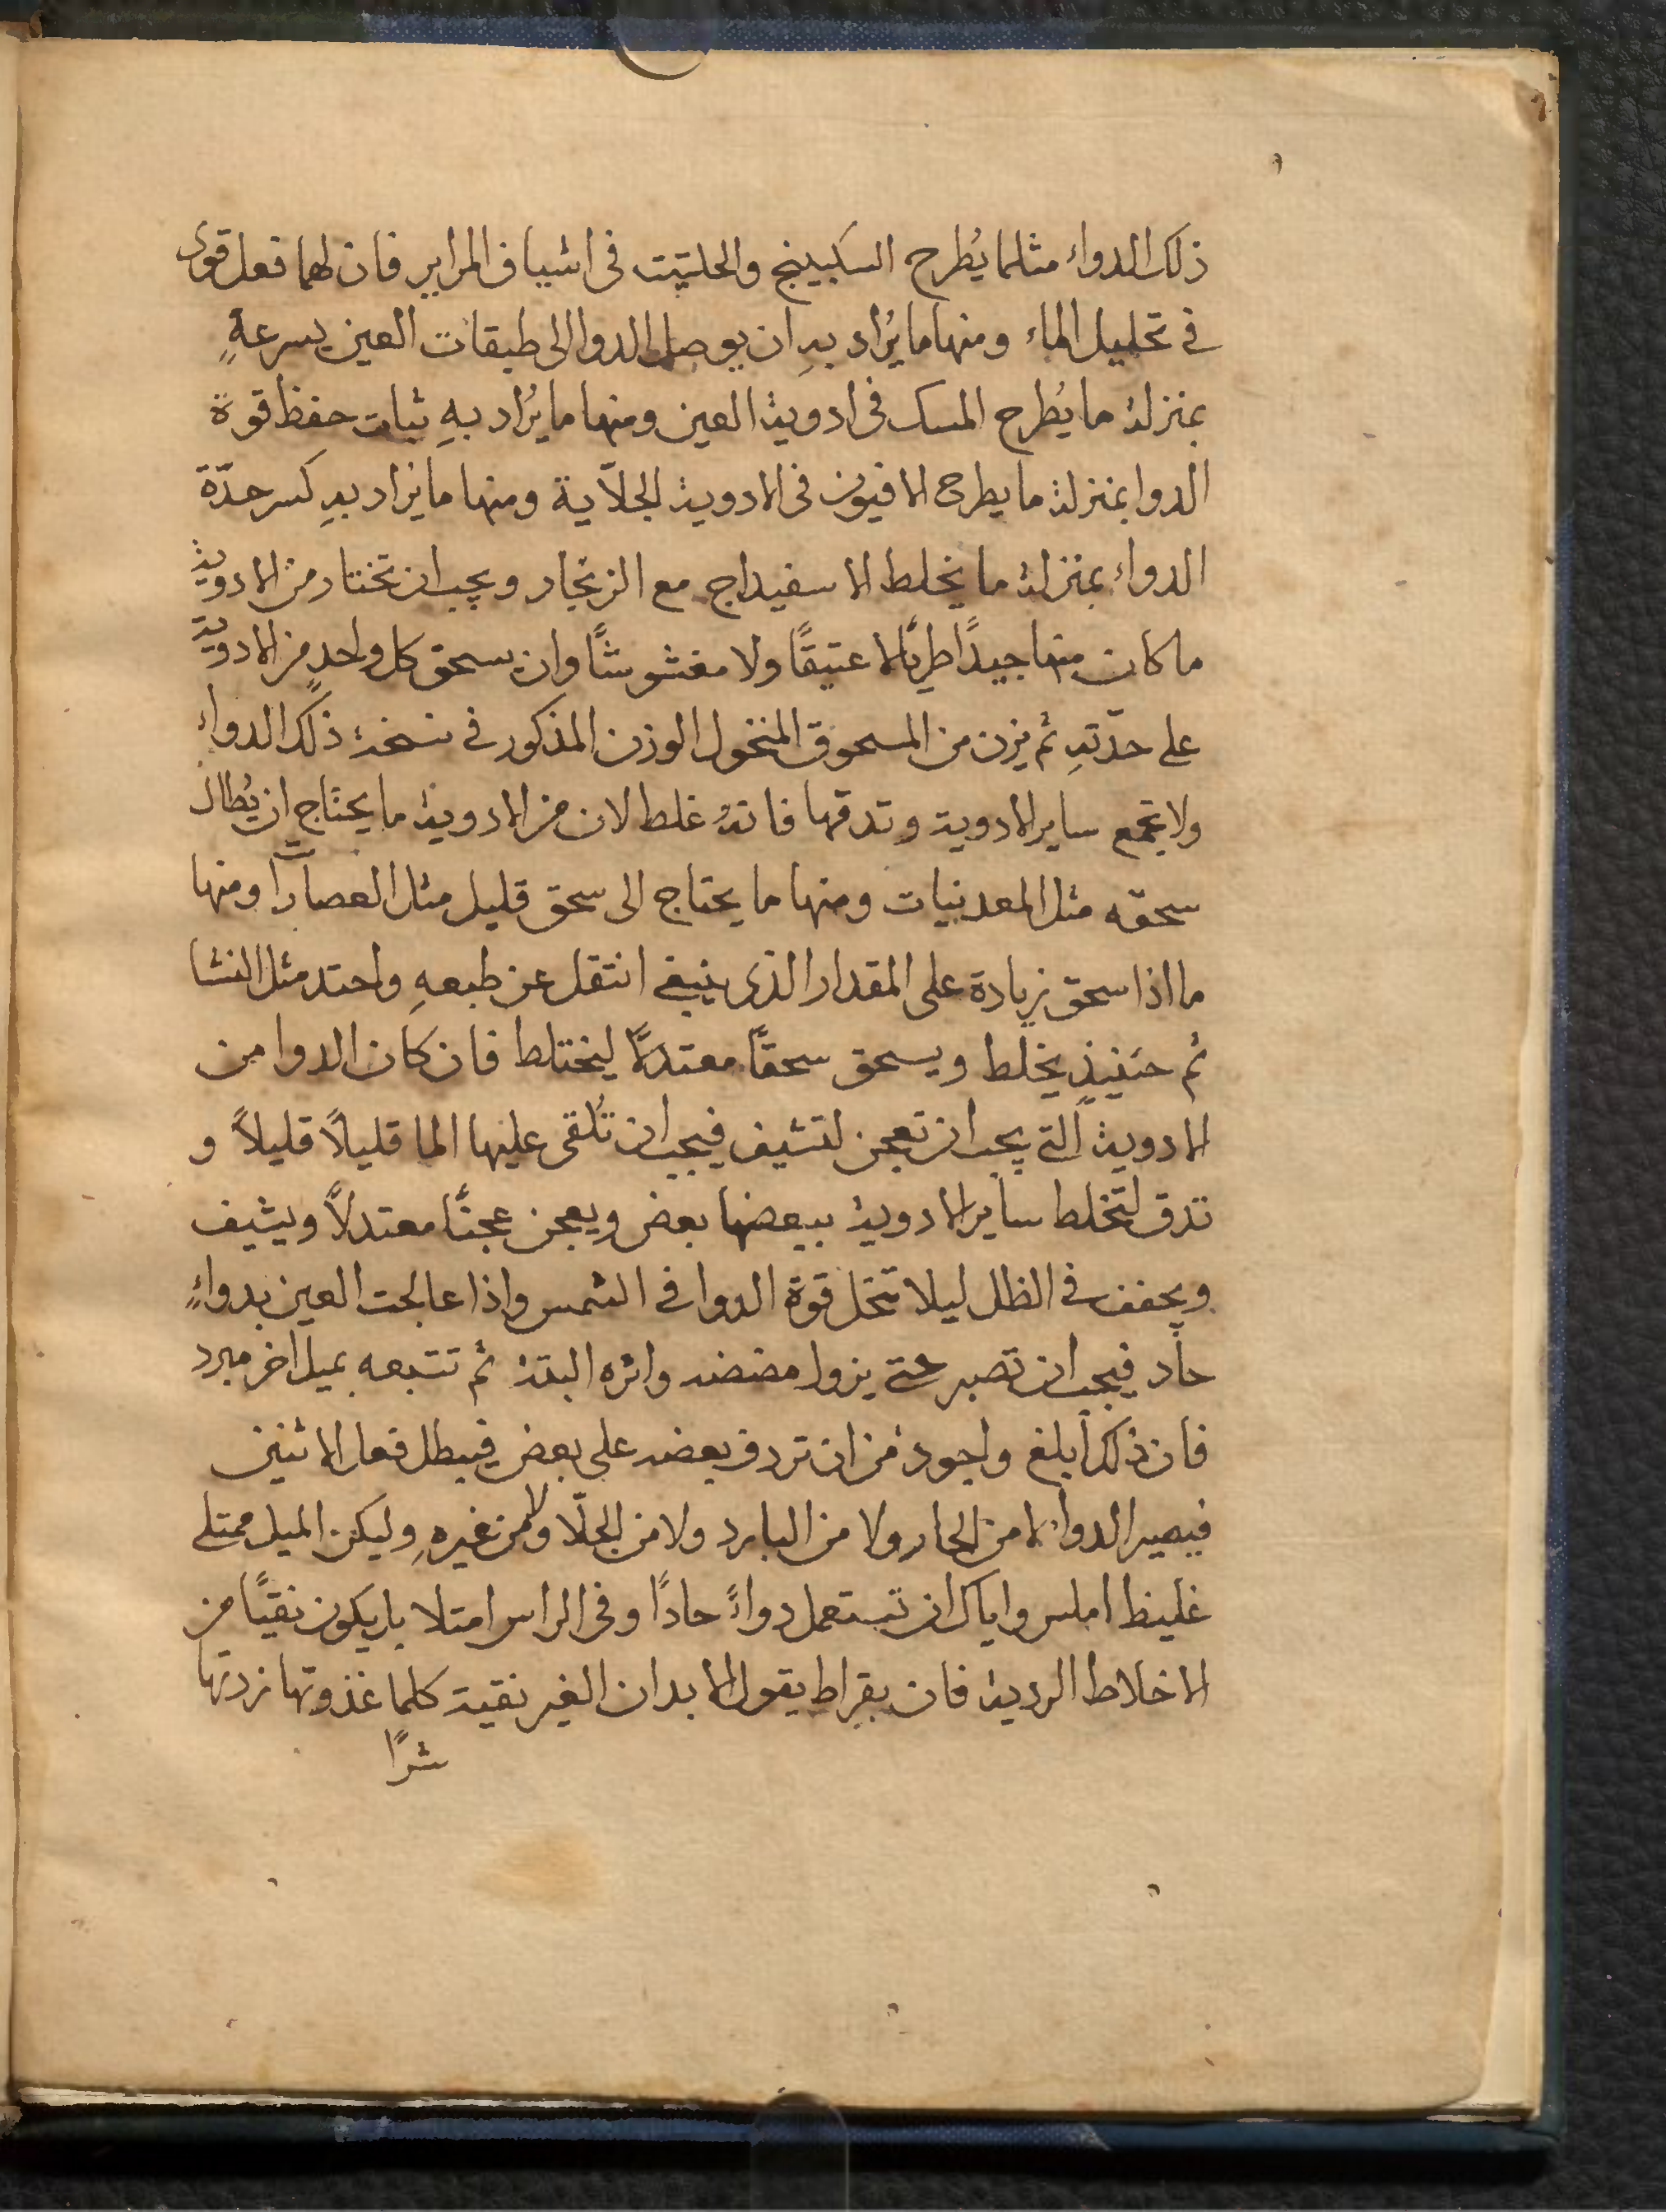 ذلك الدواء مثلما يُطرح السكبينج والحلتيت فى اشياف المراير فان لهما فعل قوى
فى تحليل الماء ومنها ما يُراد بهِ ان يوصل الدوا الى طبقات العين بسرعةٍ
بمنزلة ما يُطرح المسك فى ادوية العين ومنها ما يُراد بهِ ثبات حفظ قوة
الدوا بمنزلة ما يطرح الافيون فى الادوية الجلّاية ومنها ما يراد بهِ كسر حدّة
الدواء بمنزلة ما يخلط الاسفيداج مع الزنجار ويجب ان تختار من الادوية
ما كان منها جيدًا طريًا لا عتيقًا ولا مغشوشًا وان يسحق كل واحدٍ من الادوية
على حدّتهِ ثم يزن من المسحوق المنخول الوزن المذكور فى نسخة ذلك الدواء
ولا يجمع ساير الادوية وتدقها فانهُ غلط لان من الادوية ما يحتاج ان يُطال
سحقه مثل المعدنيات ومنها ما يحتاج الى سحق قليل مثل العصارات ومنها
ما اذا سحق زيادة على المقدار الذى ينبغى انتقل عن طبعهِ واحتد مثل النشا
ثم حينيذٍ يخلط ويسحق سحقًا معتدلًا ليختلط فان كان الدوا من
الادوية التى يجب ان تعجن لتشيف فيجب ان تُلقى عليها الما قليلًا قليلًا و
تدق لتختلط ساير الادوية ببعضها بعض ويعجن عجنًا معتدلًا ويشيف
ويجفف فى الظل ليلا تنحل قوة الدوا فى الشمس واذا عالجت العين بدواءٍ
حاد فيجب ان تصبر حتى يزول مضضه واثره البتة ثم تتبعه بميل اخر مبرد
فان ذلك ابلغ واجود من ان تردف بعضه على بعض فيبطل فعل الاثنين
فيصير الدوا لا من الحار ولا من البارد ولا من الجلّا ولا من غيرهِ وليكن الميل ممتلى
غليظ املس واياك ان تستعمل دواءً حادًا وفى الراس امتلا بل يكون نقيًا من
الاخلاط الردية فان بقراط يقول الابدان الغير نقية كلما غذوتها زدتها
شرًا